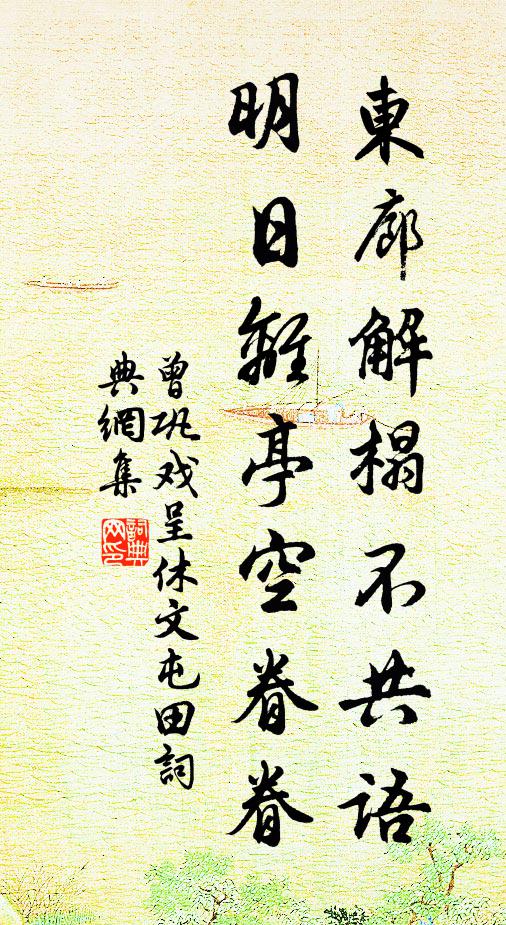 東廊解榻不共语
明日離亭空眷眷
曾巩戏呈休文屯田詞
典網集
詞典
网印